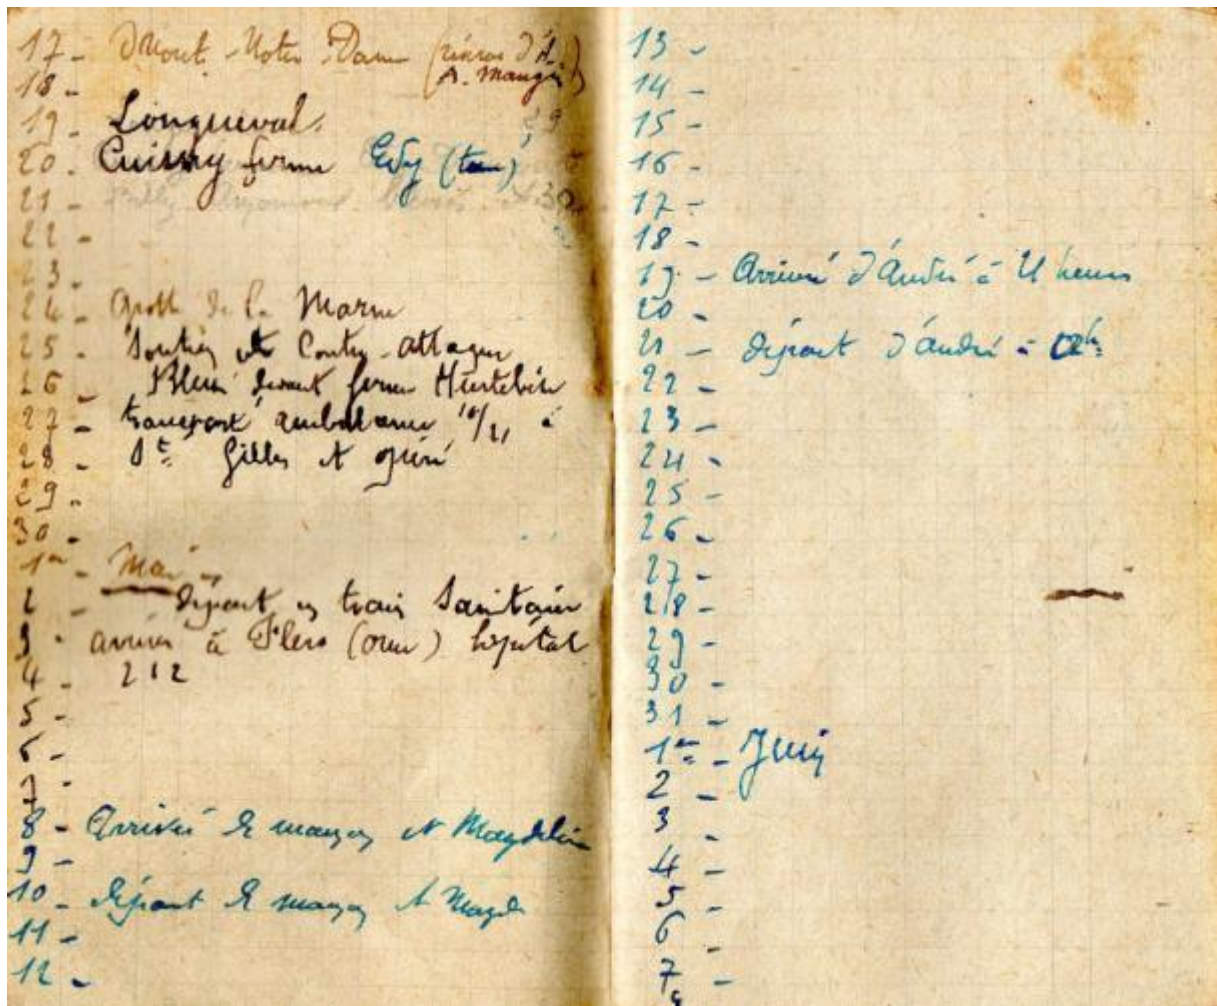 17 - Mont-Notre-Dame (
18 - A. Mangin)
19 - Longueval.
20 - Cuissy ferme
21 -
22 -
23 -
24 - Grotte de la Marne
25 - Soutien et Contre-attaque
26 - Blessé devant ferme Hurtebise
27 - transporté ambulance 16/21 à
28 - St Gilles et opéré
29 -
30 -
1er - Mai -
2 - Départ en train Sanitaire
3 - arrivée à Flers (Orne) hôpital
4 - 212
5 -
6 -
7 -
8 - Arrivée de maman et Magdeleine
9 -
10 - départ de maman et Magd
11 -
12 -
13 -
14 -
15 -
16 -
17 -
18 -
19 - Arrivée d'André à 21 heures
20 -
21 - départ d'André à
22 -
23 -
24 -
25 -
26 -
27 -
28 -
29 -
30 -
31 -
1er - Juin
2 -
3 -
4 -
5 -
6 -
7 -